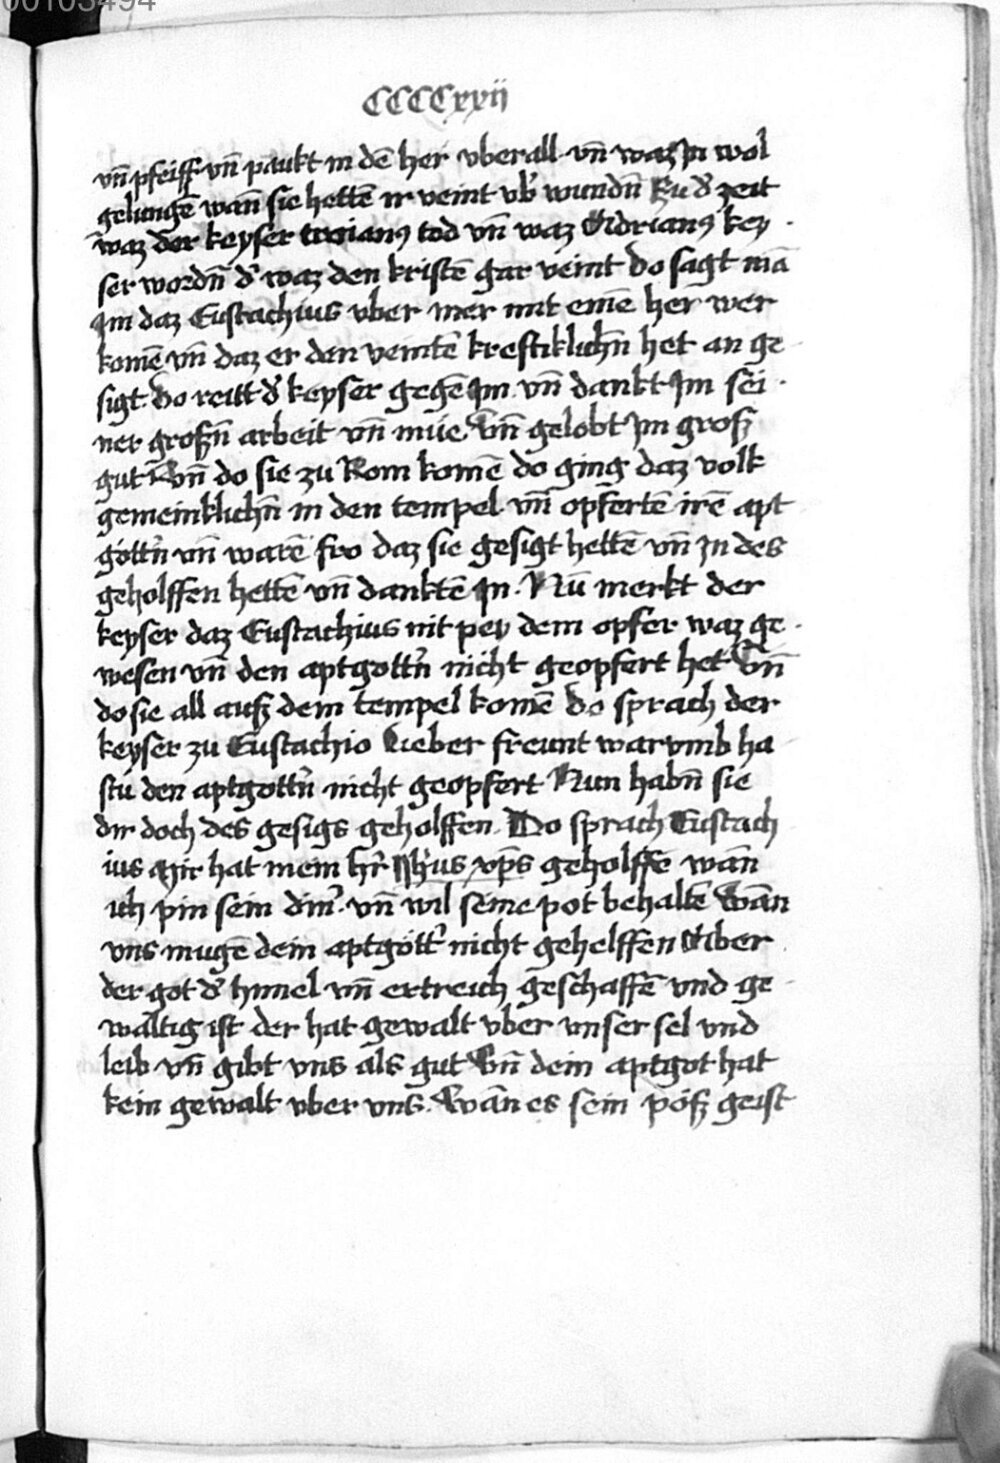 00103494
CCCCxxij
vn̄ pfeiff vn̄ paukt in dē her vberall vn̄ waz Jn wol
gelungē wan̄ sie hettē ir veint vb᷑ wundn̄ Zu d᷑ zeit
waz der keyser troianꝰ tod vn̄ waz Adrianꝰ key
ser wordn̄ d᷑ waz den kristē gar veint do sagt mā
Jm daz Eustachius vber mer mit einē her wer
komē vn̄ daz er den veintē kreftiklichn̄ het an ge
sigt Do reitt d᷑ keyser gegē Jm vn̄ dankt Jm sei
ner großn̄ arbeit vn̄ müe Vn̄ gelobt Jm groß
gut Vn̄ do sie zu Rom komē do ging daz volk
gemeinklichn̄ in den tempel vn̄ opfertē irē apt
göttn̄ vn̄ warē fro daz sie gesigt hettē vn̄ Jn des
geholffen hettē vn̄ danktē Jn Nu merkt der
keyser daz Eustachius nit pey dem opfer waz ge
wesen vn̄ den aptgottn̄ nicht geopfert het Vn̄
do sie all auß dem tempel komē do sprach der
keyser zu Eustachio Lieber freunt warvmb ha
stu den aptgottn̄ nicht geopfert Nun habn̄ sie
dir doch des gesigs geholffen Do sprach Eustach
ius Mir hat mein hr̄ Jh᷑us xp̄s geholffē wān
ich pin sein din᷑ vn̄ wil seine pot behaltē Wān
vns mugē dein aptgött᷑ nicht gehelffen Aber
der got d᷑ himel vn̄ ertreich geschaffē vnd ge
waltig ist der hat gewalt vber vnser sel vnd
leib vn̄ gibt vns als gut Vn̄ dein aptgot hat
kein gewalt vber vns Wān es sein pöß geist